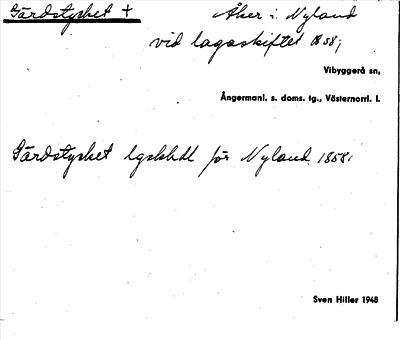 Gärdstycket + Åker i Nyland
vid lagaskiftet 1858;
Vibyggerå sn,
Ångermanl. s. doms. tg., Västernorrl. l.
Gärdstycket lgskhdl för Nyland 1858.
Sven Hiller 1948